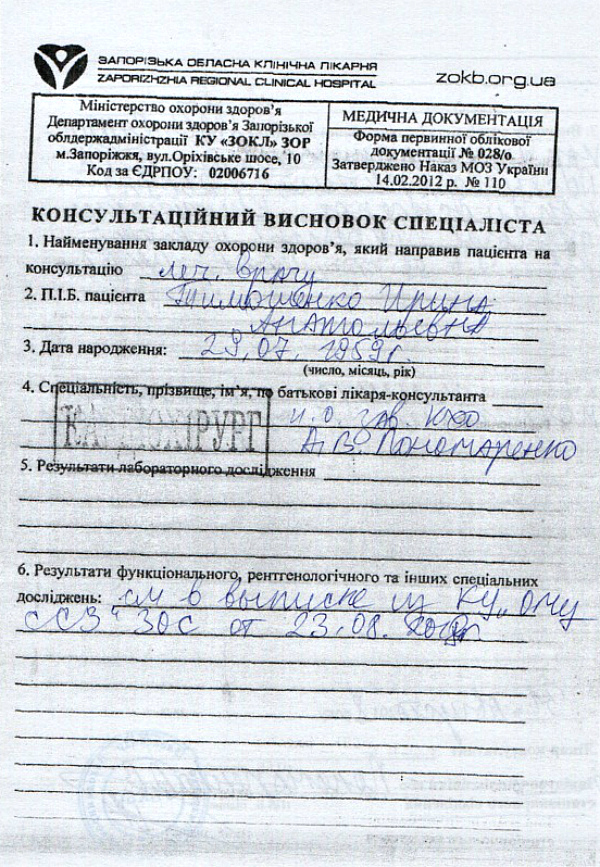 ЗАПОРІЗЬКА ОБЛАСНА КЛІНІЧНА ЛІКАРНЯ
ZAPORIZHZHIA REGIONAL CLINICAL HOSPITAL
zokb.org.ua
Міністерство охорони здоров'я
Департамент охорони здоров'я Запорізької
облдержадміністрації КУ «ЗОКЛ» ЗОР
м.Запоріжжя, вул.Оріхівське шосе, 10
Код за ЄДРПОУ: 02006716
МЕДИЧНА ДОКУМЕНТАЦІЯ
Форма первинної облікової
документації № 028/о
Затверджено Наказ МОЗ України
14.02.2012 р. № 110
КОНСУЛЬТАЦІЙНИЙ ВИСНОВОК СПЕЦІАЛІСТА
1. Найменування закладу охорони здоров'я, який направив пацієнта на
консультацію леч. врачу
2. П.І.Б. пацієнта Тимошенко Ирина
Анатольевна
3. Дата народження: 29.07.1959г.
(число, місяць, рік)
4. Спеціальність, прізвище, ім'я, по батькові лікаря-консультанта
КАРДІОХІРУРГ
и.о зав. КХО
А.В. Пономаренко
5. Результати лабораторного дослідження
6. Результати функціонального, рентгенологічного та інших спеціальних
досліджень: см в выписке из КУ
ЗОС от 23.08.